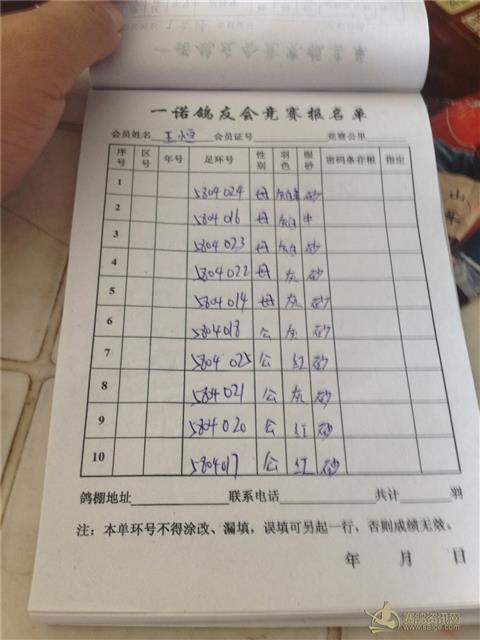 一诺鸽友会竞赛报名单
会员姓名 王恒 会员证号 竞赛公里
序号 区号 年号 足环号 性别 羽色 眼砂 密码条存根 指定
1 5804024 母 砂
2 5804016 母 牛
3 5804023 母 砂
4 5804022 母 灰 砂
5 5804014 母 灰 砂
6 5804018 公 灰 砂
7 5804025 公 红 砂
8 5804021 公 灰 砂
9 5804020 公 红 砂
10 5804017 公 红 砂
鸽棚地址 联系电话 共计 羽
注：本单环号不得涂改、漏填，误填可另起一行，否则成绩无效。
年 月 日
赛鸽资讯网
www.saige.com